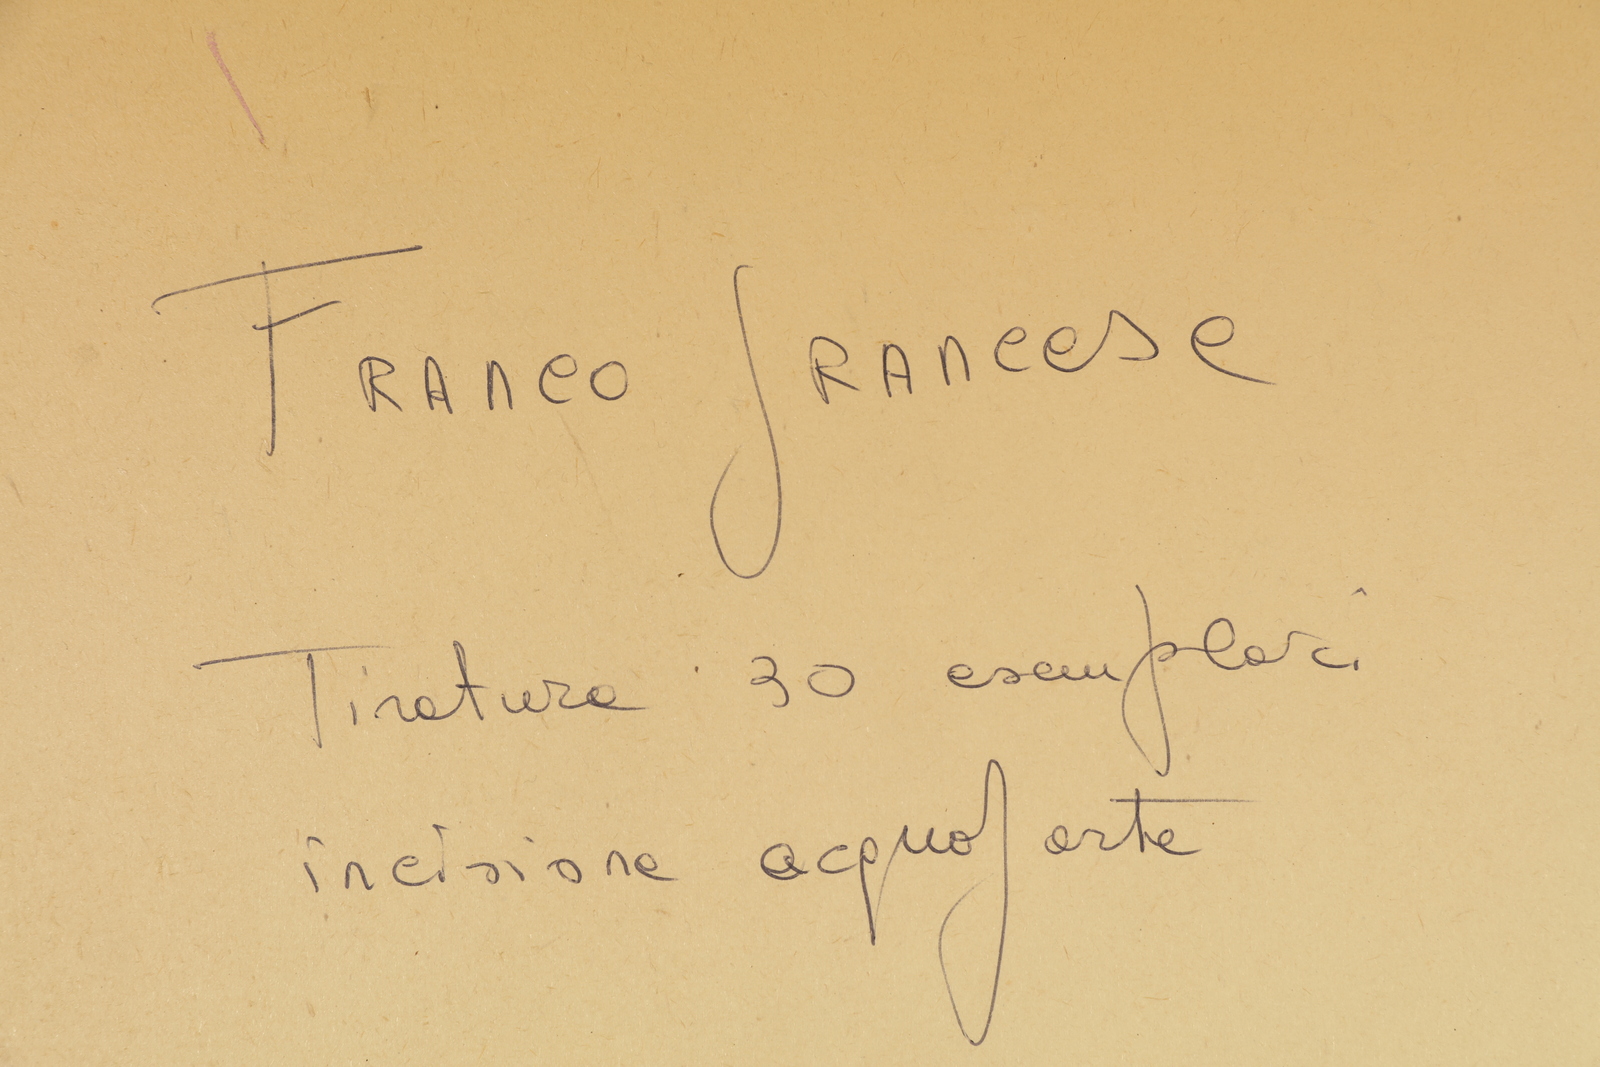 Franco Francese
Tiratura 30 esemplari
incisione acquaforte